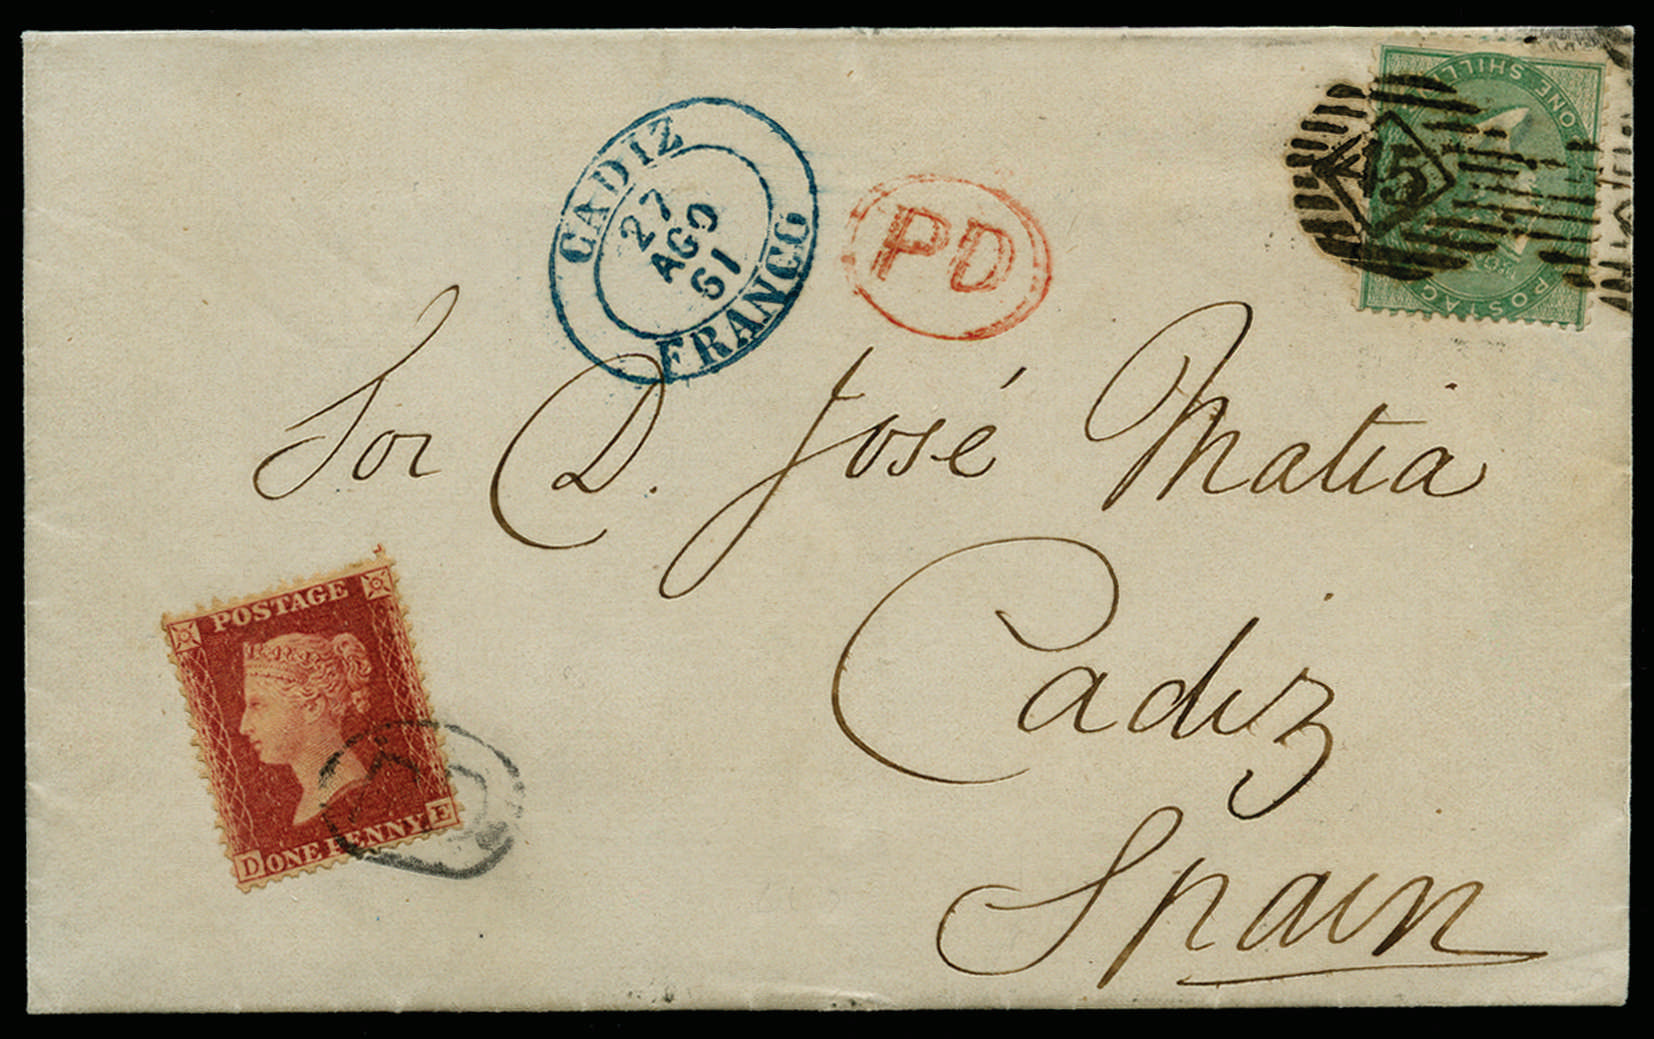 CADIZ
27
AGO
61
FRANCO
PD
ONE SHILL
POSTAG
15
Sor D. José Matia
Cadiz
Spain
POSTAGE
D ONE PENNY E